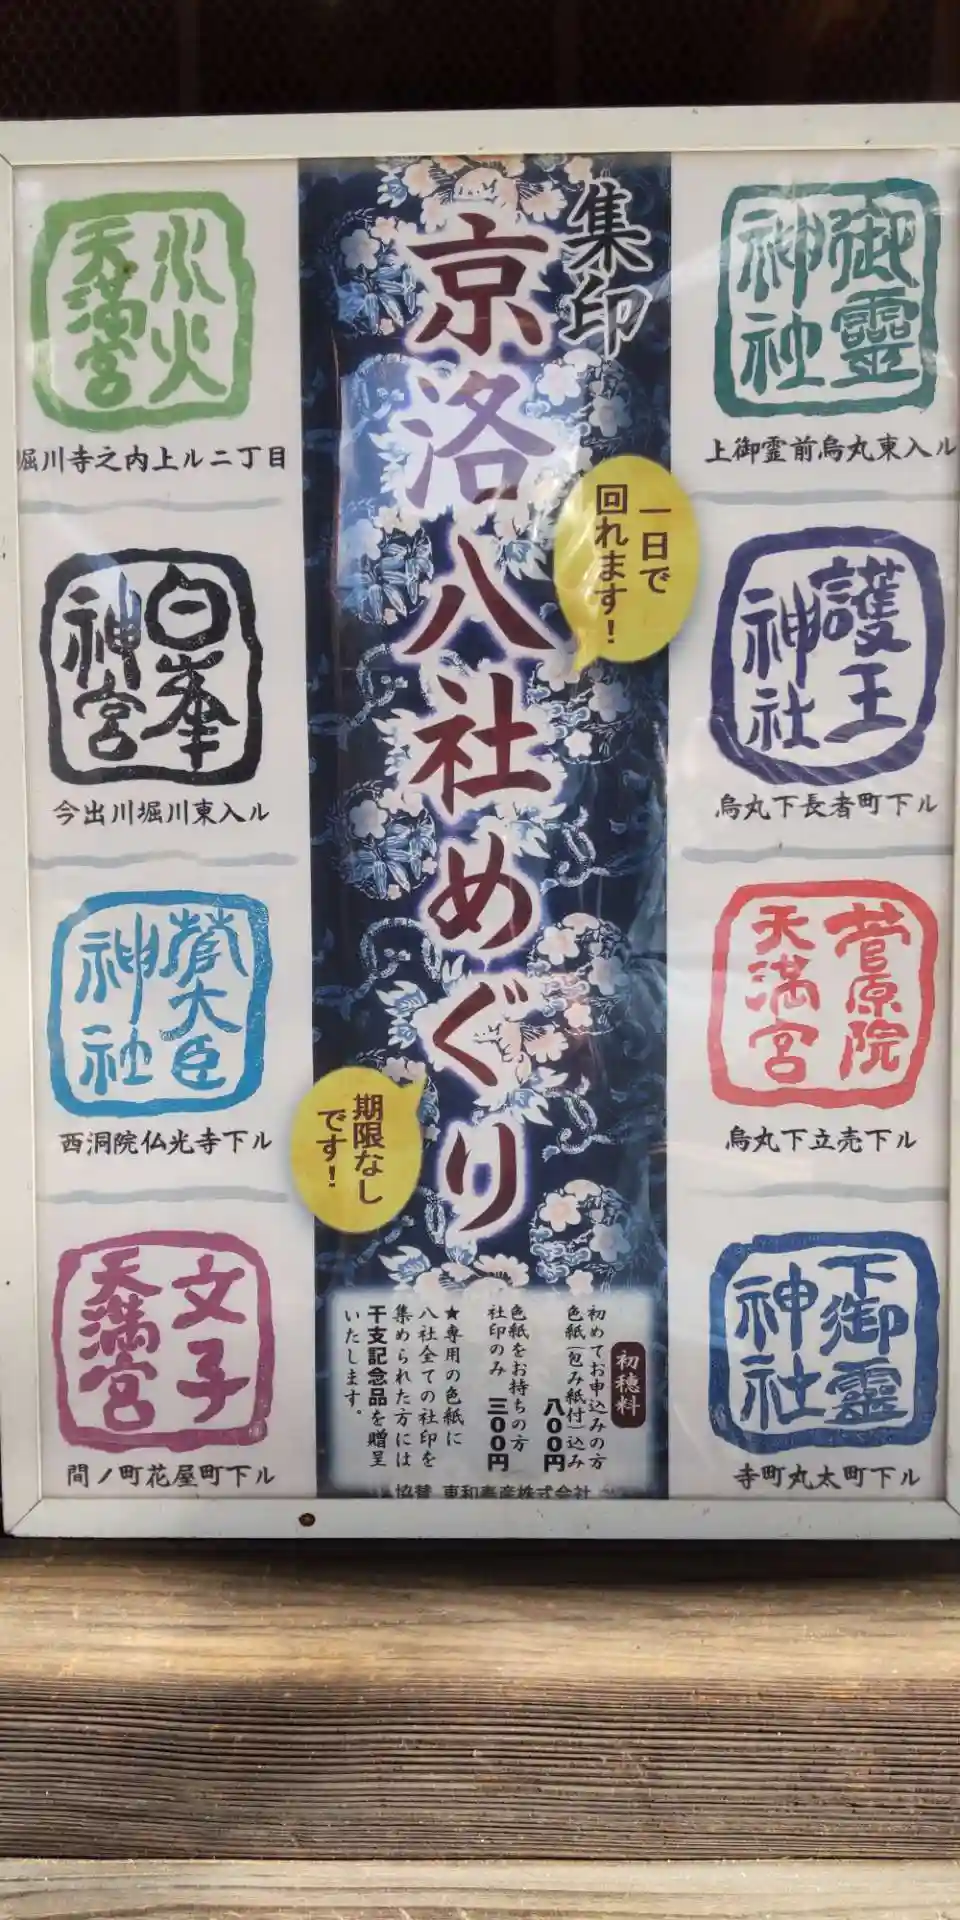 集印
京洛八社めぐり
一日で
回れます！
期限なし
です！
御靈
神社
上御霊前烏丸東入ル
護王
神社
烏丸下長者町下ル
菅原院
天満宮
烏丸下立売下ル
下御靈
神社
寺町丸太町下ル
水火
天満宮
堀川寺之内上ル二丁目
白峯
神宮
今出川堀川東入ル
菅大臣
神社
西洞院仏光寺下ル
文子
天満宮
間ノ町花屋町下ル
初穂料
初めてお申込みの方
色紙(包み紙付)込み
八〇〇円
色紙をお持ちの方
社印のみ 三〇〇円
★専用の色紙に
八社全ての社印を
集められた方には
干支記念品を贈呈
いたします。
協賛 東和泰産株式会社